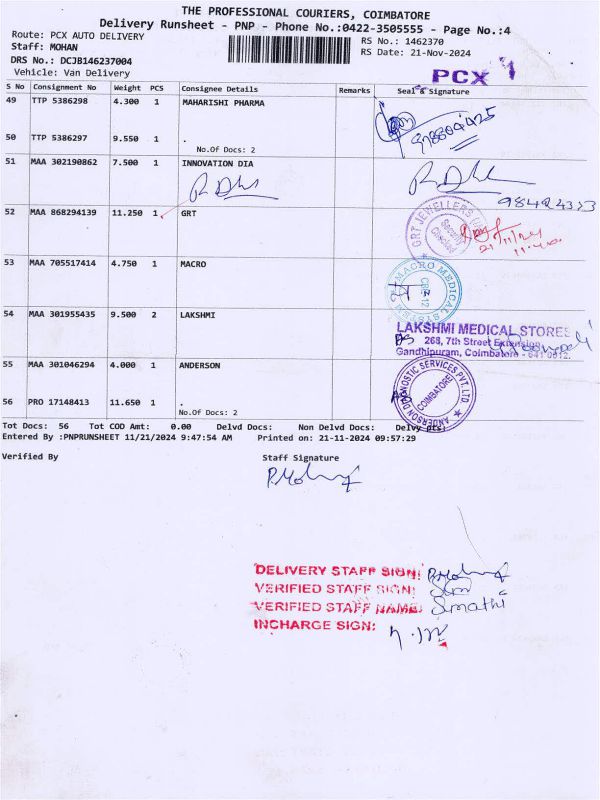 THE PROFESSIONAL COURIERS, COIMBATORE
Delivery Runsheet - PNP - Phone No.:0422-3505555 - Page No.:4
Route: PCX AUTO DELIVERY
RS No.: 1462370
Staff: MOHAN
RS Date: 21-Nov-2024
DRS No.: DCJB146237004
Vehicle: Van Delivery
PCX
S No Consignment No Weight PCS Consignee Details Remarks Seal & Signature
49 TTP 5386298 4.300 1 MAHARISHI PHARMA
50 TTP 5386297 9.550 1 .
No.Of Docs: 2
51 MAA 302190862 7.500 1 INNOVATION DIA
52 MAA 868294139 11.250 1 GRT
GRT JEWELLERS
Security
Checked
21/11/24
53 MAA 705517414 4.750 1 MACRO
MACRO MEDICAL SYSTEM
CBE-12
54 MAA 301955435 9.500 2 LAKSHMI
LAKSHMI MEDICAL STORES
268, 7th Street Extension,
Gandhipuram, Coimbatore - 641 0012.
55 MAA 301046294 4.000 1 ANDERSON
ANDERSON DIAGNOSTIC SERVICES PVT. LTD
COIMBATORE
56 PRO 17148413 11.650 1 .
No.Of Docs: 2
Tot Docs: 56 Tot COD Amt: 0.00 Delvd Docs: Non Delvd Docs: Delvy pts:
Entered By :PNPRUNSHEET 11/21/2024 9:47:54 AM Printed on: 21-11-2024 09:57:29
Verified By Staff Signature
DELIVERY STAFF SIGN:
VERIFIED STAFF SIGN:
VERIFIED STAFF NAME: Sumathi
INCHARGE SIGN: